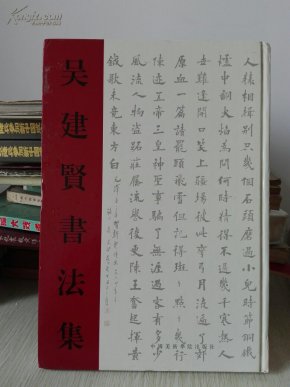 吴建賢書法集
人猿相揖别只幾個石頭磨過小兒時節銅鐵
爐中翻火焰為問何時猜得不過幾千寒熱人
世難逢開口笑上疆場彼此彎弓月流遍了郊
原血一篇讀罷頭飛雪但記得斑々點々幾行
陳迹五帝三皇神聖事騙了無涯過客有多少
風流人物盗跖莊蹻流譽後更陳王奮起揮黄
鉞歌未竟東方白
中國美術學院出版社